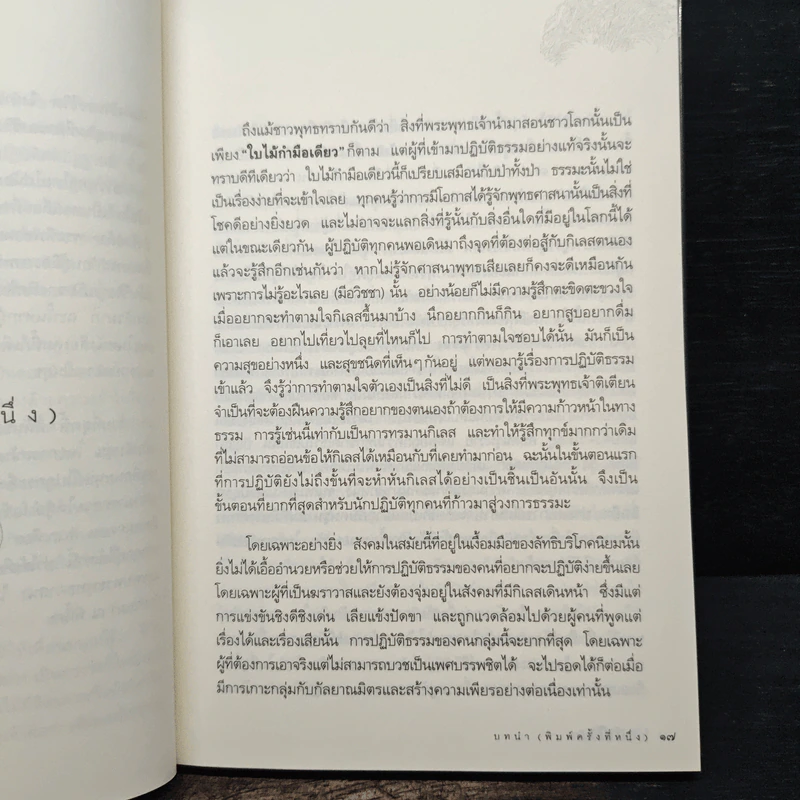 ถึงแม้ชาวพุทธทราบกันดีว่า สิ่งที่พระพุทธเจ้านำมาสอนชาวโลกนั้นเป็น
เพียง “ใบไม้กำมือเดียว” ก็ตาม แต่ผู้ที่เข้ามาปฏิบัติธรรมอย่างแท้จริงนั้นจะ
ทราบดีทีเดียวว่า ใบไม้กำมือเดียวนี้ก็เปรียบเสมือนกับป่าทั้งป่า ธรรมะนั้นไม่ใช่
เป็นเรื่องง่ายที่จะเข้าใจเลย ทุกคนรู้ว่าการมีโอกาสได้รู้จักพุทธศาสนานั้นเป็นสิ่งที่
โชคดีอย่างยิ่งยวด และไม่อาจจะแลกสิ่งที่รู้นั้นกับสิ่งอื่นใดที่มีอยู่ในโลกนี้ได้
แต่ในขณะเดียวกัน ผู้ปฏิบัติทุกคนพอเดินมาถึงจุดที่ต้องต่อสู้กับกิเลสตนเอง
แล้วจะรู้สึกอีกเช่นกันว่า หากไม่รู้จักศาสนาพุทธเสียเลยก็คงจะดีเหมือนกัน
เพราะการไม่รู้อะไรเลย (มีอวิชชา) นั้น อย่างน้อยก็ไม่มีความรู้สึกตะขิดตะขวงใจ
เมื่ออยากจะทำตามใจกิเลสขึ้นมาบ้าง นึกอยากกินก็กิน อยากสูบอยากดื่ม
ก็เอาเลย อยากไปเที่ยวไปลุยที่ไหนก็ไป การทำตามใจชอบได้นั้น มันก็เป็น
ความสุขอย่างหนึ่ง และสุขชนิดที่เห็นๆกันอยู่ แต่พอมารู้เรื่องการปฏิบัติธรรม
เข้าแล้ว จึงรู้ว่าการทำตามใจตัวเองเป็นสิ่งที่ไม่ดี เป็นสิ่งที่พระพุทธเจ้าติเตียน
จำเป็นที่จะต้องฝืนความรู้สึกอยากของตนเองถ้าต้องการให้มีความก้าวหน้าในทาง
ธรรม การรู้เช่นนี้เท่ากับเป็นการทรมานกิเลส และทำให้รู้สึกทุกข์มากกว่าเดิม
ที่ไม่สามารถอ่อนข้อให้กิเลสได้เหมือนกับที่เคยทำมาก่อน ฉะนั้นในขั้นตอนแรก
ที่การปฏิบัติยังไม่ถึงขั้นที่จะห้ำหั่นกิเลสได้อย่างเป็นชิ้นเป็นอันนั้น จึงเป็น
ขั้นตอนที่ยากที่สุดสำหรับนักปฏิบัติทุกคนที่ก้าวมาสู่วงการธรรมะ
โดยเฉพาะอย่างยิ่ง สังคมในสมัยนี้ที่อยู่ในเงื้อมมือของลัทธิบริโภคนิยมนั้น
ยิ่งไม่ได้เอื้ออำนวยหรือช่วยให้การปฏิบัติธรรมของคนที่อยากจะปฏิบัติง่ายขึ้นเลย
โดยเฉพาะผู้ที่เป็นฆราวาสและยังต้องจุ่มอยู่ในสังคมที่มีกิเลสเดินหน้า ซึ่งมีแต่
การแข่งขันชิงดีชิงเด่น เลียแข้งปัดขา และถูกแวดล้อมไปด้วยผู้คนที่พูดแต่
เรื่องได้และเรื่องเสียนั้น การปฏิบัติธรรมของคนกลุ่มนี้จะยากที่สุด โดยเฉพาะ
ผู้ที่ต้องการเอาจริงแต่ไม่สามารถบวชเป็นเพศบรรพชิตได้ จะไปรอดได้ก็ต่อเมื่อ
มีการเกาะกลุ่มกับกัลยาณมิตรและสร้างความเพียรอย่างต่อเนื่องเท่านั้น
บทนำ (พิมพ์ครั้งที่หนึ่ง) ๑๗
นึ่ง)